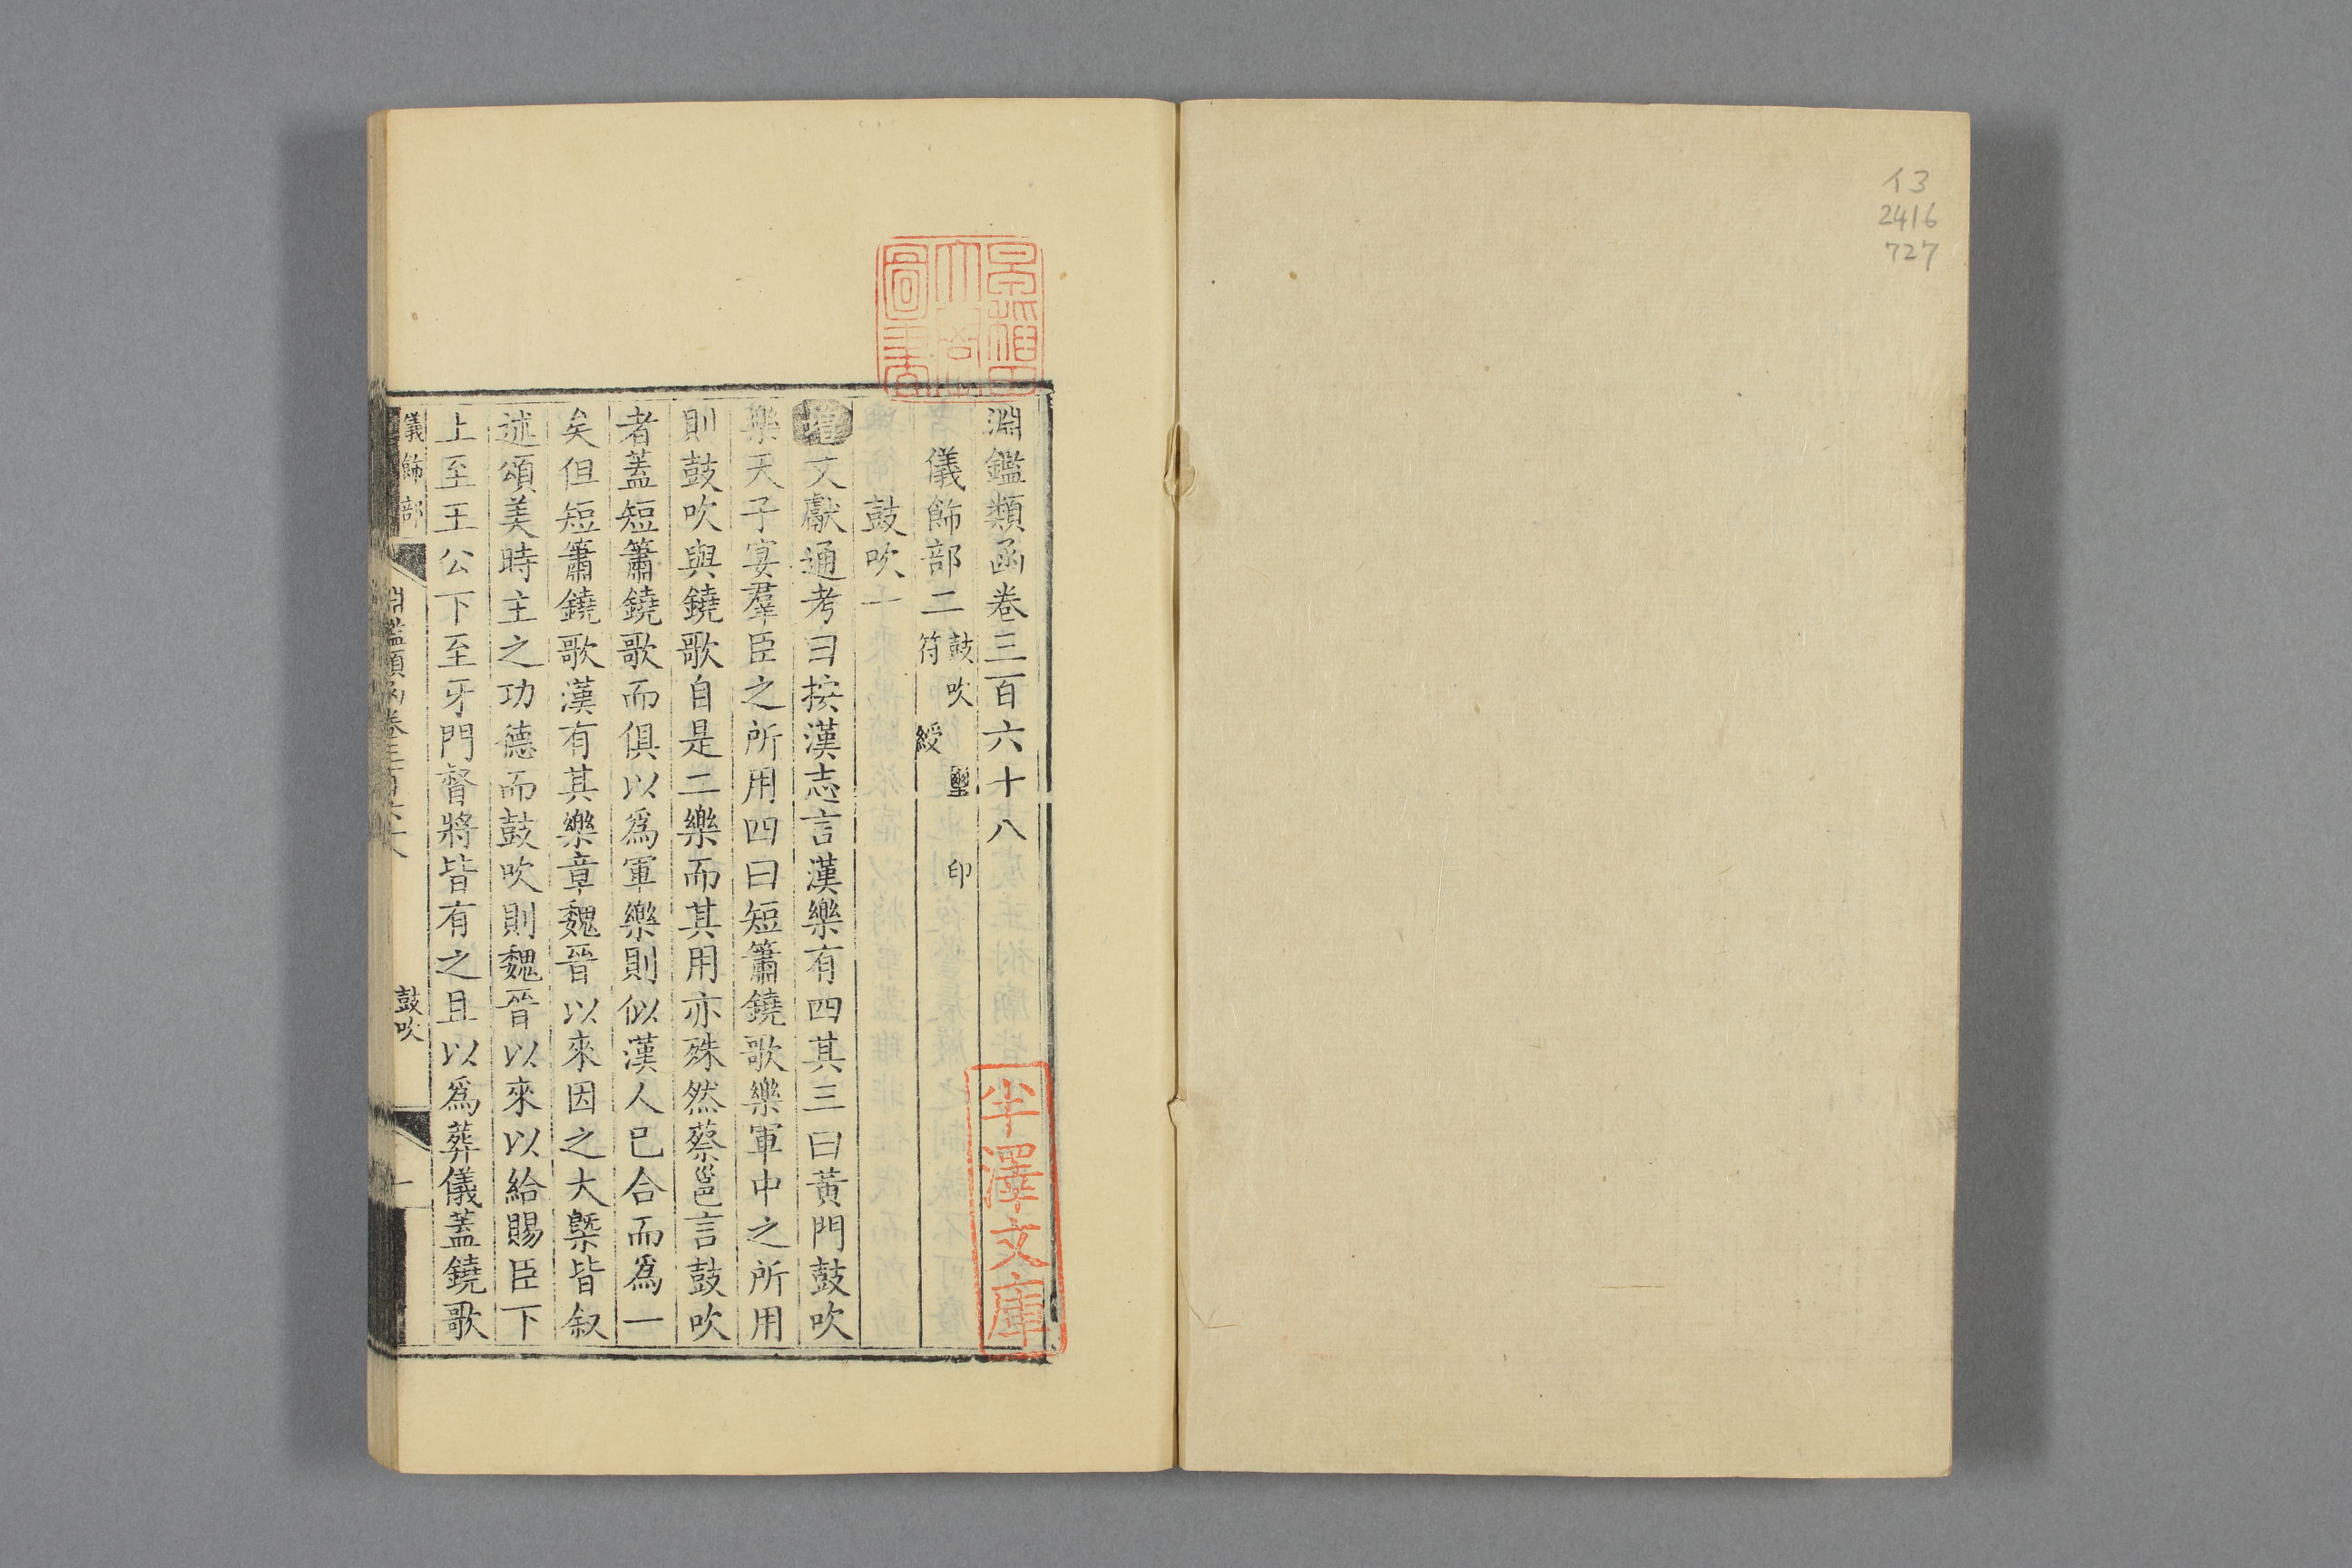 イ3
2416
727
淵鑑類函卷三百六十八
儀飾部二 鼓吹 璽 印
符 綬
鼓吹一
增文獻通考曰按漢志言漢樂有四其三曰黃門鼓吹
樂天子宴羣臣之所用四曰短簫鐃歌樂軍中之所用
則鼓吹與鐃歌自是二樂而其用亦殊然蔡邕言鼓吹
者蓋短簫鐃歌而俱以爲軍樂則似漢人已合而爲一
矣但短簫鐃歌漢有其樂章魏晉以來因之大槩皆叙
述頌美時主之功德而鼓吹則魏晉以來以給賜臣下
上至王公下至牙門督將皆有之且以爲葬儀蓋鐃歌
儀飾部 淵鑑類函卷三百六十八 鼓吹 一
半澤文庫